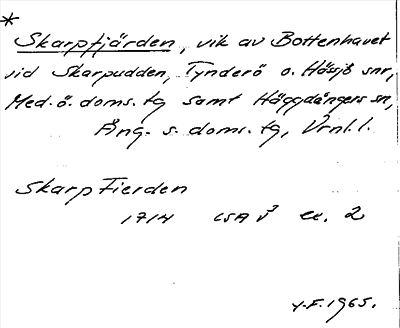 *
Skarpfjärden, vik av Bottenhavet
vid Skarpudden, Tynderö o. Hässjö snr,
Med. ö. doms. tg samt Häggdångers sn,
Äng. s. doms. tg, Vrnl. l.
Skarp Fierden
1714 LSA Y³ ex. 2
Y.F. 1965.